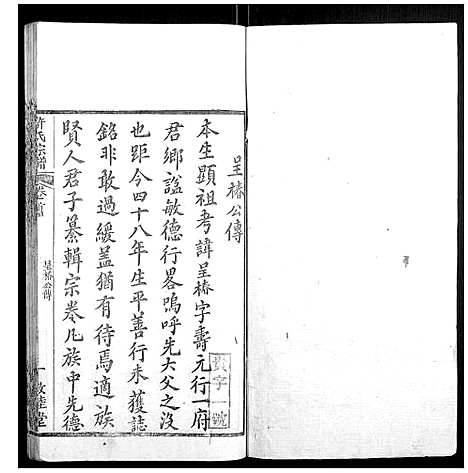 呈椿公傳
本生顯祖考諱呈椿字壽元行一府
君鄉謚敏德行畧嗚呼先大父之沒
也距今四十八年生平善行未獲誌
銘非敢過緩盖猶有待焉適族
賢人君子纂輯宗卷凡族中先德
字一號
許氏宗譜
卷首
呈椿公傳
敦睦堂